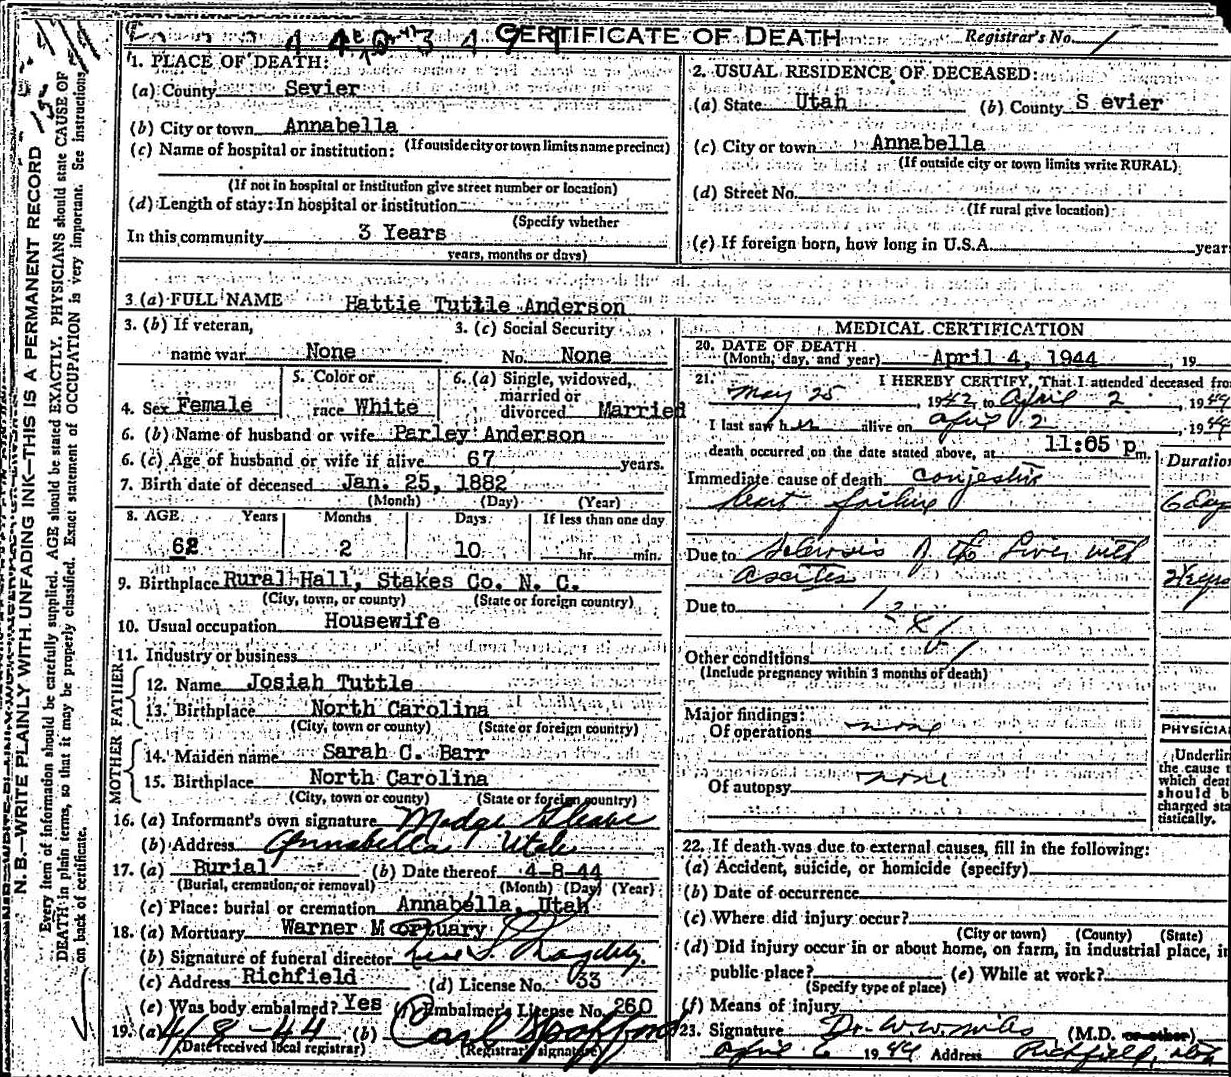 CERTIFICATE OF DEATH
Registrar's No. 1
N. B.—WRITE PLAINLY WITH UNFADING INK—THIS IS A PERMANENT RECORD
Every item of information should be carefully supplied. AGE should be stated EXACTLY. PHYSICIANS should state CAUSE OF
DEATH in plain terms, so that it may be properly classified. Exact statement of OCCUPATION is very important. See instructions
on back of certificate.
1. PLACE OF DEATH:
(a) County Sevier
(b) City or town Annabella
(If outside city or town limits name precinct)
(c) Name of hospital or institution:
(If not in hospital or institution give street number or location)
(d) Length of stay: In hospital or institution
(Specify whether
In this community 3 Years
years, months or days)
2. USUAL RESIDENCE OF DECEASED:
(a) State Utah (b) County S evier
(c) City or town Annabella
(If outside city or town limits write RURAL)
(d) Street No.
(If rural give location)
(e) If foreign born, how long in U.S.A. year
3. (a) FULL NAME Hattie Tuttle Anderson
3. (b) If veteran, name war None
3. (c) Social Security No. None
4. Sex Female
5. Color or race White
6. (a) Single, widowed, married or divorced Married
6. (b) Name of husband or wife Parley Anderson
6. (c) Age of husband or wife if alive 67 years.
7. Birth date of deceased Jan. 25, 1882
(Month) (Day) (Year)
8. AGE Years Months Days If less than one day
62 2 10 hr. min.
9. Birthplace Rural Hall, Stakes Co. N. C.
(City, town, or county) (State or foreign country)
10. Usual occupation Housewife
11. Industry or business
FATHER
12. Name Josiah Tuttle
13. Birthplace North Carolina
(City, town or county) (State or foreign country)
MOTHER
14. Maiden name Sarah C. Barr
15. Birthplace North Carolina
(City, town or county) (State or foreign country)
16. (a) Informant's own signature Madge Gleave
(b) Address Annabella Utah
17. (a) Burial (b) Date thereof 4-8-44
(Burial, cremation, or removal) (Month) (Day) (Year)
(c) Place: burial or cremation Annabella, Utah
18. (a) Mortuary Warner Mortuary
(b) Signature of funeral director
(c) Address Richfield (d) License No. 33
(e) Was body embalmed? Yes (f) Embalmer's License No. 260
19. (a) 4/8-44 (b) Carl Spafford
(Date received local registrar) (Registrar's signature)
MEDICAL CERTIFICATION
20. DATE OF DEATH
(Month, day, and year) April 4, 1944, 19
21. I HEREBY CERTIFY, That I attended deceased from
May 25, 1942, to April 2, 1944
I last saw her alive on April 2, 1944
death occurred on the date stated above, at 11:05 p m.
Duration
Immediate cause of death Conjestive
heart failure 6 days
Due to Sclerosis of the liver with
ascites 2½ yrs
Due to
Other conditions
(Include pregnancy within 3 months of death)
Major findings:
Of operations none
Of autopsy none
PHYSICIA
Underlin
the cause t
which deat
should b
charged sta
tistically.
22. If death was due to external causes, fill in the following:
(a) Accident, suicide, or homicide (specify)
(b) Date of occurrence
(c) Where did injury occur?
(City or town) (County) (State)
(d) Did injury occur in or about home, on farm, in industrial place, in
public place? (e) While at work?
(Specify type of place)
(f) Means of injury
23. Signature Dr. W. W. Niles (M.D. or other)
April 6 1944 Address Richfield, Utah